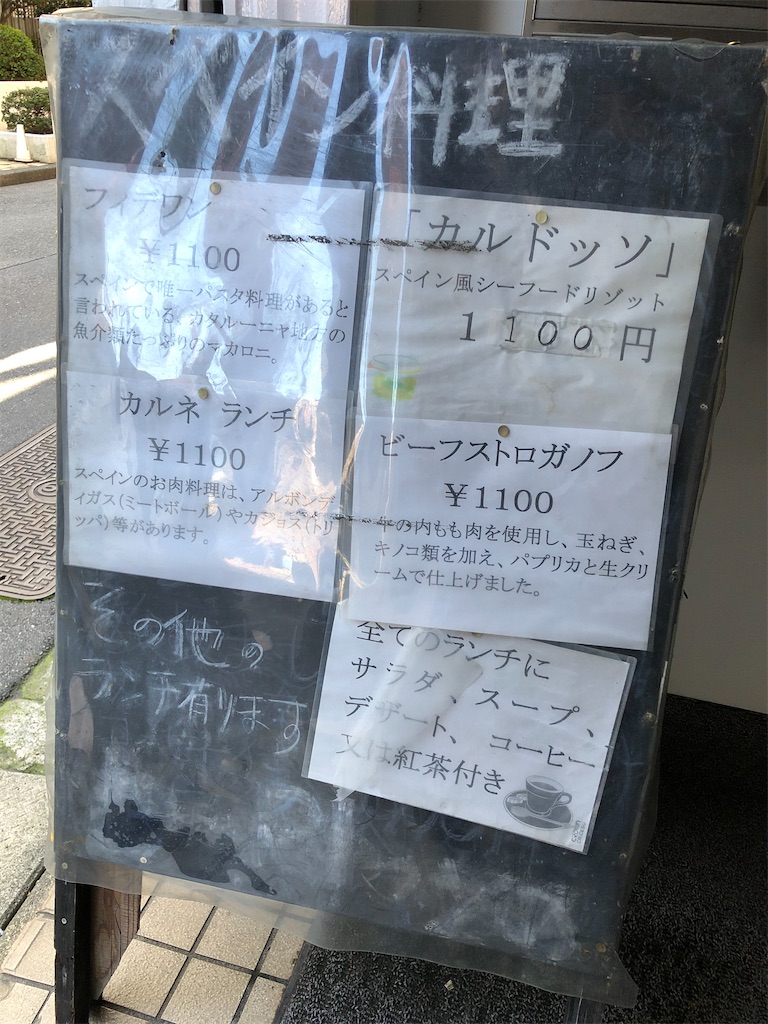 スペイン料理
フィデワン
￥1100
スペインで唯一パスタ料理があると
言われている、カタルーニャ地方の
魚介類たっぷりのマカロニ。
「カルドッソ」
スペイン風シーフードリゾット
１１００円
カルネ ランチ
￥1100
スペインのお肉料理は、アルボンデ
ィガス(ミートボール)やカジョス(トリ
ッパ)等があります。
ビーフストロガノフ
￥1100
の内もも肉を使用し、玉ねぎ、
キノコ類を加え、パプリカと生クリ
ームで仕上げました。
その他の
ランチ有ります
全てのランチに
サラダ、スープ、
デザート、コーヒー
又は紅茶付き